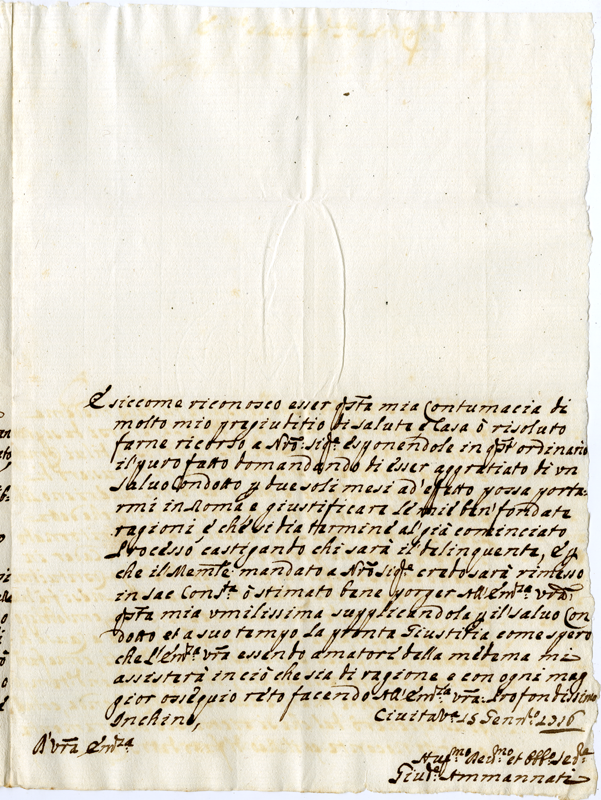 E siccome riconosco esser qsta mia Contumacia di
molto mio pregiuditio di salute e Casa ò risoluto
farne ricorso a Nro Sigre esponendole in qst ordinario
il puro fatto domandando di esser aggratiato di vn
Saluo Condotto p due soli mesi ad' effetto possa porta-
rmi in Roma e giustificare le mie ben' fondate
ragioni, e che si dia termine al già cominciato
Processo, castigando chi sarà il delinquente, e p
che il Memle mandato a Nro Sigre credo sarà rimesso
in sac Consta ò stimato bene porger All' Emza vra
qsta mia vmilissima supplicandola p il saluo Con
dotto et a suo tempo la pronta Giustitia come spero
che l'Emza vra essendo amatore della medema mi
assisterà in ciò che sia di ragione e con ogni mag
gior ossequio resto facendo All' Emza vra Profondissimo
Inchino, Ciuitava 15 Gennro 1716
A' vra Emza
Deumo et Obblo
Giuse Ammannati